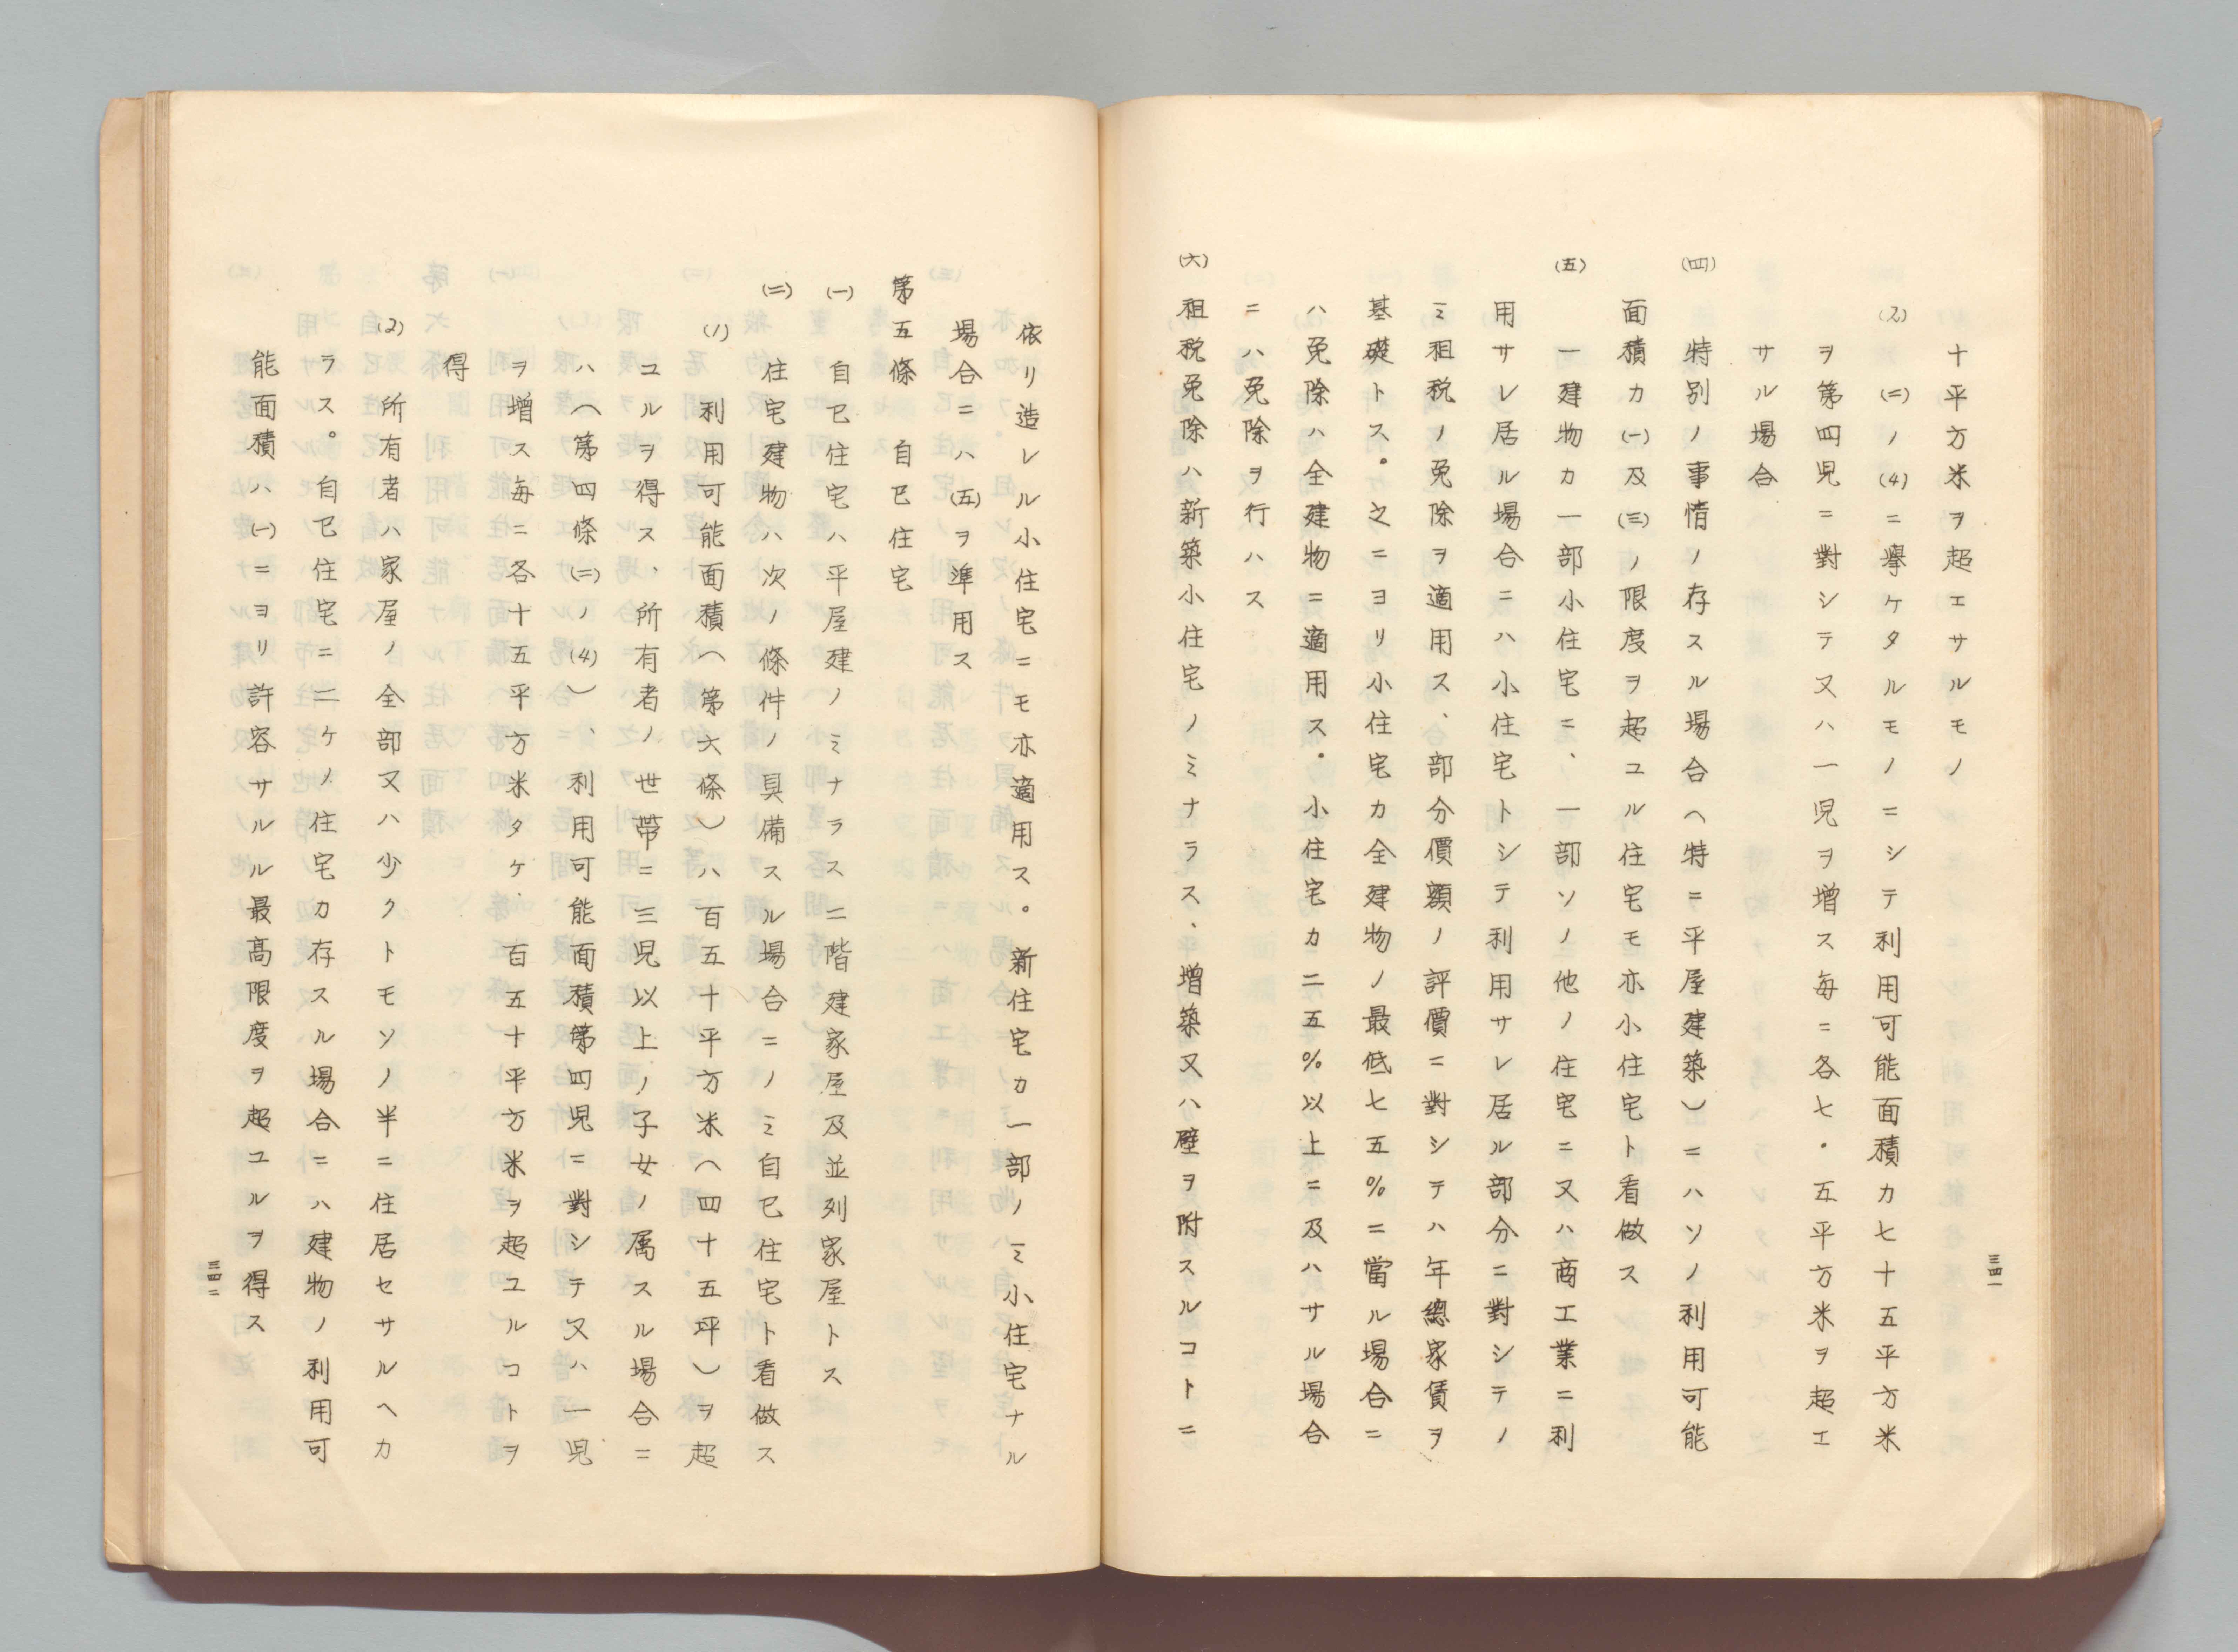 十平方米ヲ超エサルモノ
(2) (二)ノ(4)ニ擧ケタルモノニシテ利用可能面積カ七十五平方米
ヲ第四児ニ對シテ又ハ一児ヲ增ス毎ニ各七・五平方米ヲ超エ
サル場合
(四) 特別ノ事情ノ存スル場合(特ニ平屋建築)ニハソノ利用可能
面積カ(一)及(三)ノ限度ヲ超ユル住宅モ亦小住宅ト看做ス
(五) 一建物カ一部小住宅ニ、一部ソノ他ノ住宅ニ又ハ商工業ニ利
用サレ居ル場合ニハ小住宅トシテ利用サレ居ル部分ニ對シテノ
ミ租税ノ免除ヲ適用ス、部分價額ノ評價ニ對シテハ年總家賃ヲ
基礎トス。之ニヨリ小住宅カ全建物ノ最低七五%ニ當ル場合ニ
ハ免除ハ全建物ニ適用ス。小住宅カ二五%以上ニ及ハサル場合
ニハ免除ヲ行ハス
(六) 租税免除ハ新築小住宅ノミナラス、增築又ハ壁ヲ附スルコトニ
三四一
依リ造レル小住宅ニモ亦適用ス。新住宅カ一部ノミ小住宅ナル
場合ニハ(五)ヲ準用ス
第五條 自已住宅
(一) 自已住宅ハ平屋建ノミナラス二階建家屋及並列家屋トス
(二) 住宅建物ハ次ノ條件ノ具備スル場合ニノミ自已住宅ト看做ス
(1) 利用可能面積(第六條)ハ百五十平方米(四十五坪)ヲ超
ユルヲ得ス、所有者ノ世帶ニ三児以上ノ子女ノ属スル場合ニ
ハ(第四條(二)ノ(4))、利用可能面積第四児ニ對シテ又ハ一児
ヲ增ス毎ニ各十五平方米タケ百五十平方米ヲ超ユルコトヲ
得
(2) 所有者ハ家屋ノ全部又ハ少クトモソノ半ニ住居セサルヘカ
ラス。自已住宅ニ二ケノ住宅カ存スル場合ニハ建物ノ利用可
能面積ハ(一)ニヨリ許容サルル最高限度ヲ超ユルヲ得ス
三四二